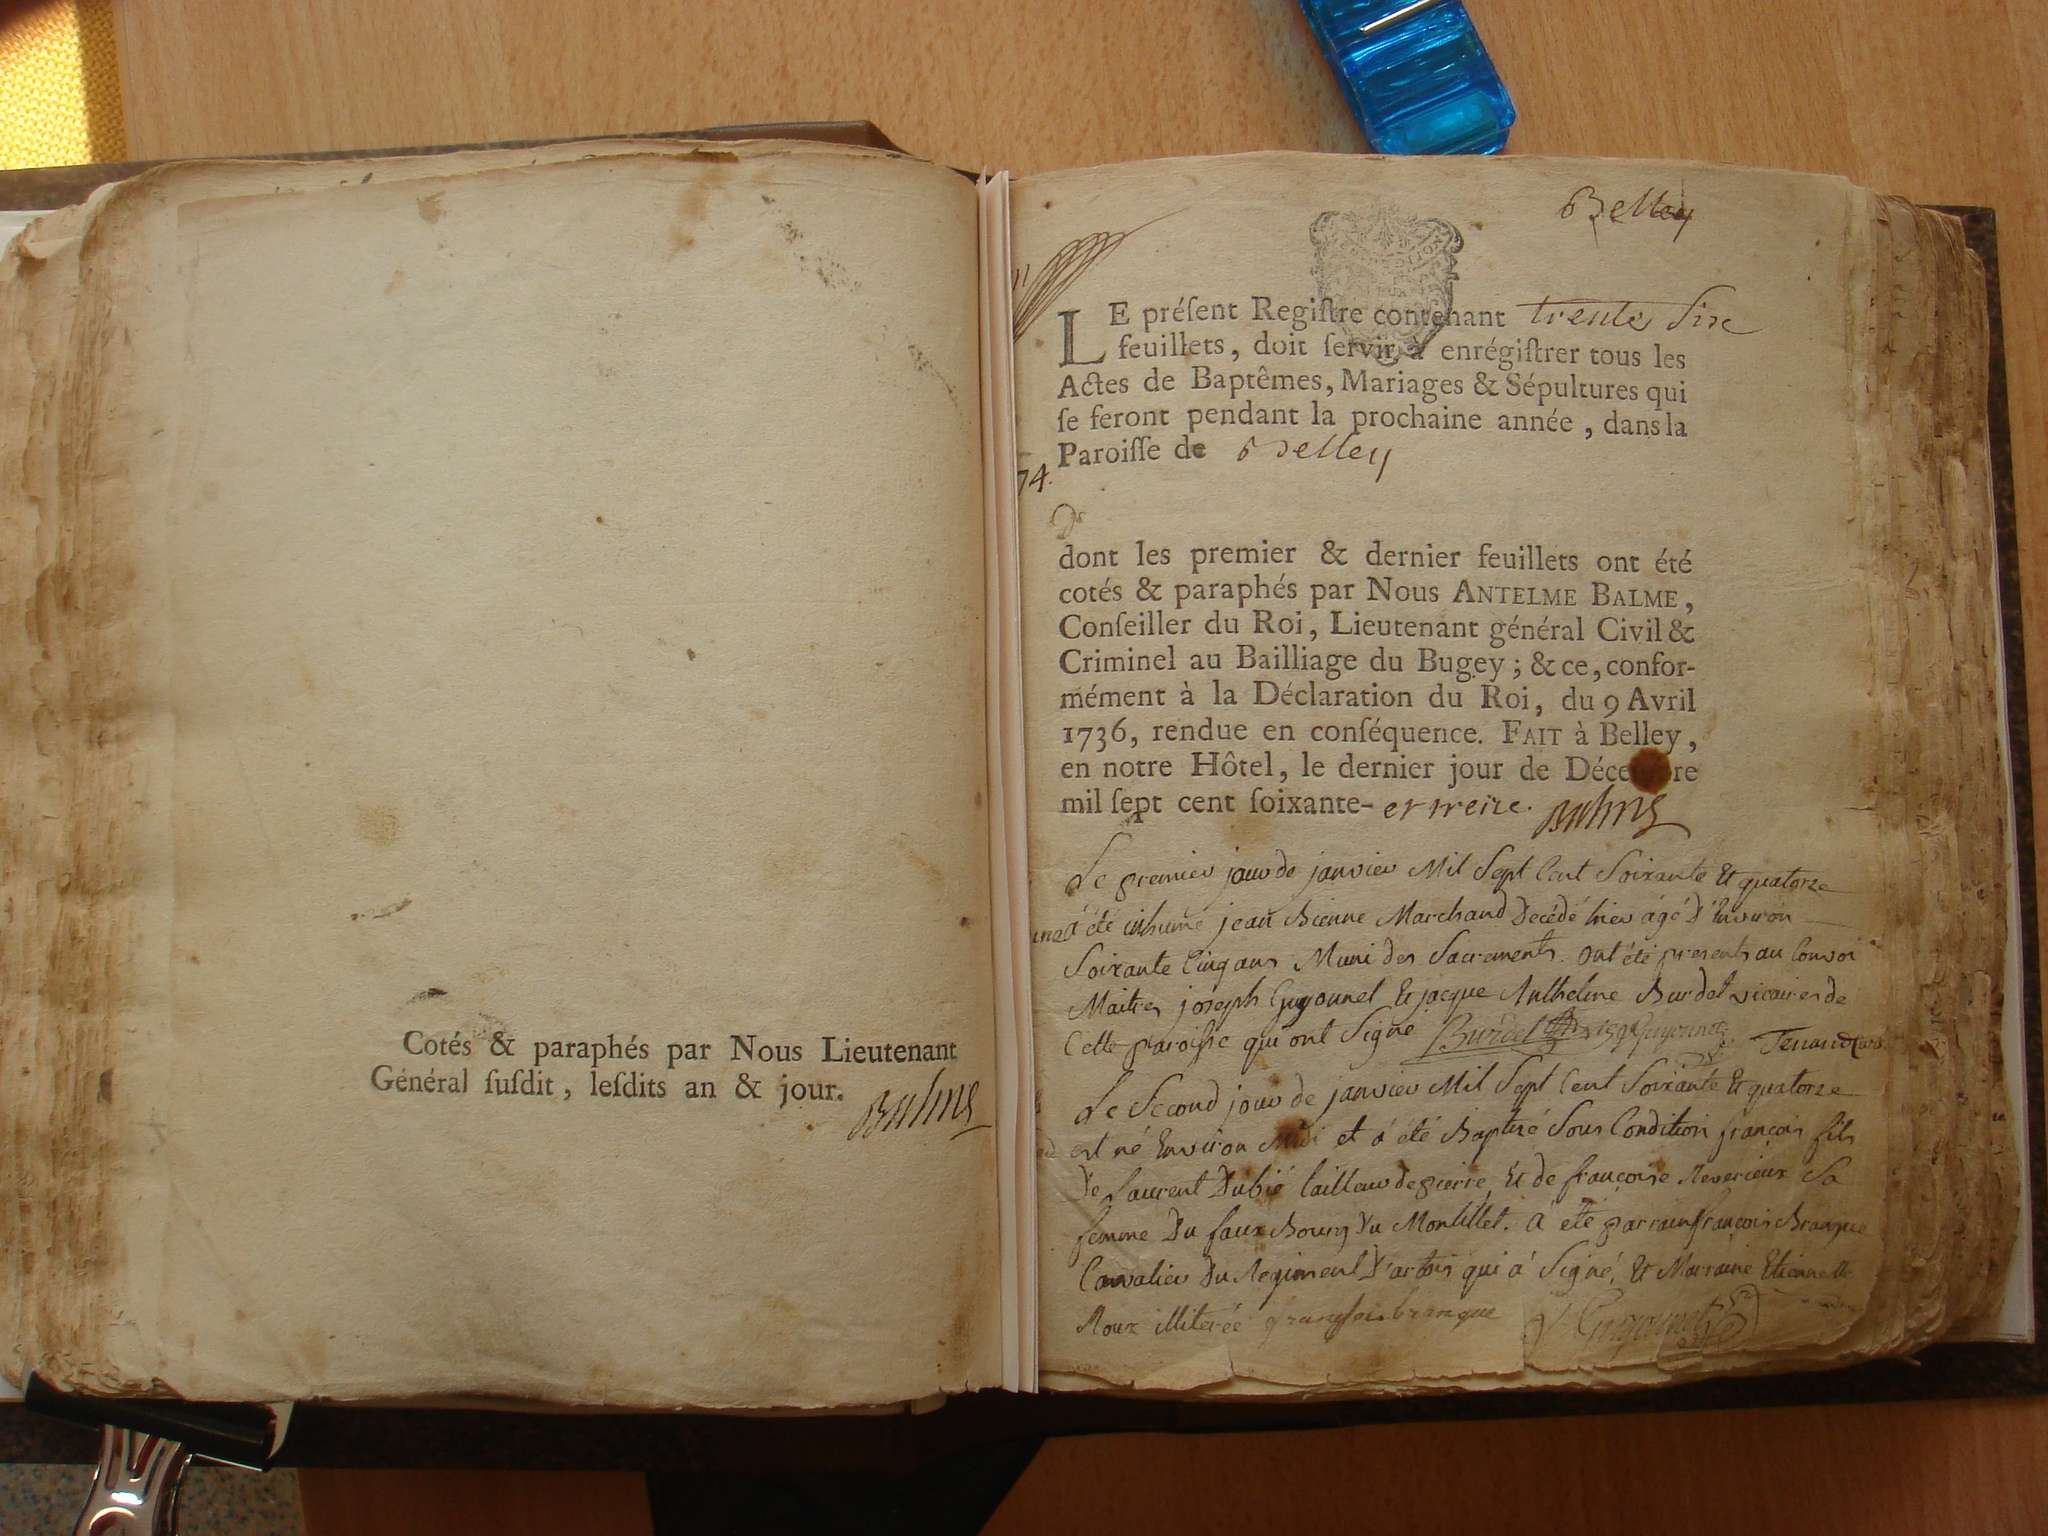 Cotés & paraphés par Nous Lieutenant
Général ſuſdit, leſdits an & jour.
Balme
Belley
LE préſent Regiſtre contenant trente Six
feuillets, doit ſervir à enrégiſtrer tous les
Actes de Baptêmes, Mariages & Sépultures qui
ſe feront pendant la prochaine année, dans la
Paroiſſe de Belley
74.
dont les premier & dernier feuillets ont été
cotés & paraphés par Nous ANTELME BALME,
Conſeiller du Roi, Lieutenant général Civil &
Criminel au Bailliage du Bugey; & ce, confor-
mément à la Déclaration du Roi, du 9 Avril
1736, rendue en conſéquence. FAIT à Belley,
en notre Hôtel, le dernier jour de Décembre
mil ſept cent ſoixante- et treize. Balme
Le premier jour de janvier Mil Sept Cent Soixante Et quatorze
á été inhumé jean Bienne Marchand Decédé hier agé D'Environ
Soixante Cinq ans Muni des Sacrements. ont été presents au Convoi
Maitres joseph Guyonnet Et jacque Anthelme Burdet vicaires de
Cette paroisse qui ont Signé Burdet Guyonnet
Le Second jour de janvier Mil Sept Cent Soixante Et quatorze
est né Environ Midi et á été Baptisé Sous Condition françois fils
De Laurent Dubié tailleur de pierre, Et de françoise Reverieux Sa
femme Du faux Bourg Du Montillet. á été parrain françois Branque
Cavalier Du Regiment D'artois qui á Signé, Et Marraine Etiennette
Roux illiterée françois branque Guyonnet